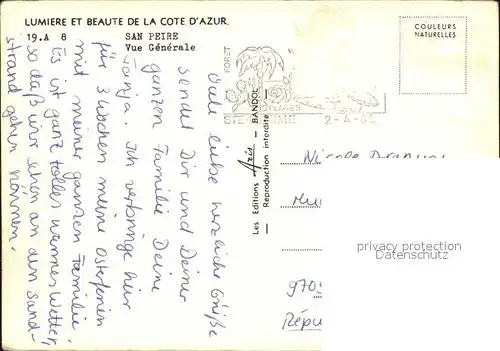 LUMIERE ET BEAUTE DE LA COTE D'AZUR.
19.A 8 SAN PEIRE
Vue Générale
COULEURS
NATURELLES
FORET
PLAGES
STE MAXIME 2-4-86
Les Editions Aris — BANDOL
Reproduction interdite
Viele liebe herzliche Grüße
sendet Dir und Deiner
ganzen Familie Deine
Tanja. Ich verbringe hier
für 3 Wochen meine Osterferien
mit meiner ganzen Familie.
Es ist ganz tolles warmes Wetter,
so daß wir schon an den Sand-
strand gehen können.
Nicole
970
Répu
privacy protection
Datenschutz